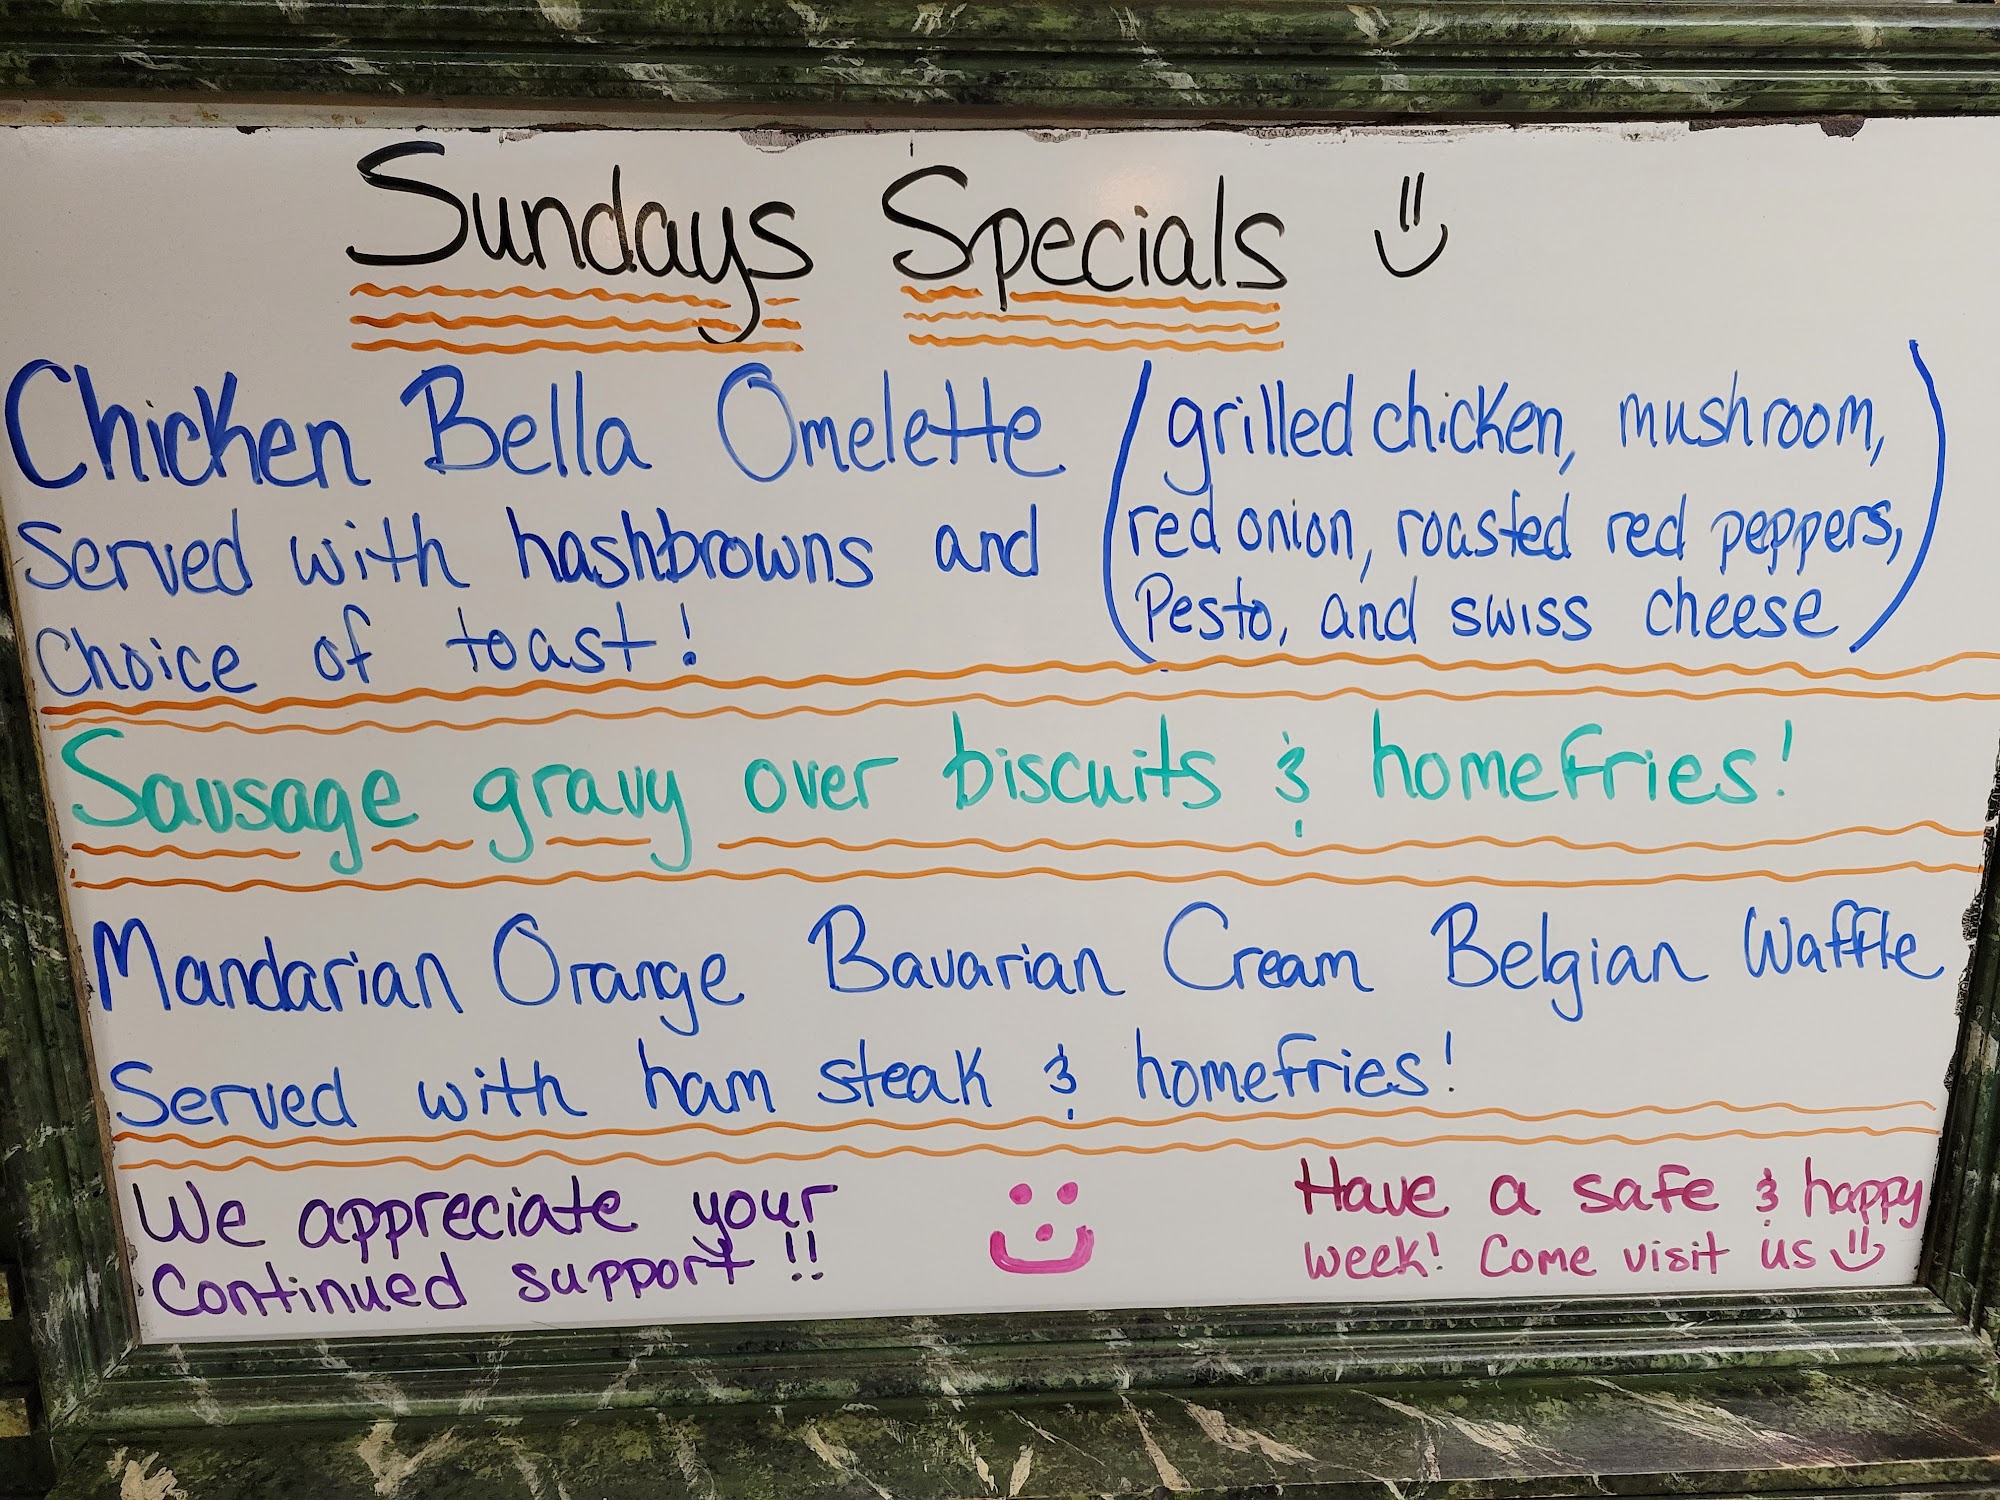 Sundays Specials
Chicken Bella Omelette
Served with hashbrowns and
Choice of toast!
(grilled chicken, mushroom,
red onion, roasted red peppers,
Pesto, and swiss cheese)
Sausage gravy over biscuits & homefries!
Mandarian Orange Bavarian Cream Belgian Waffle
Served with ham steak & homefries!
We appreciate your
Continued support!!
Have a safe & happy
week! Come visit us